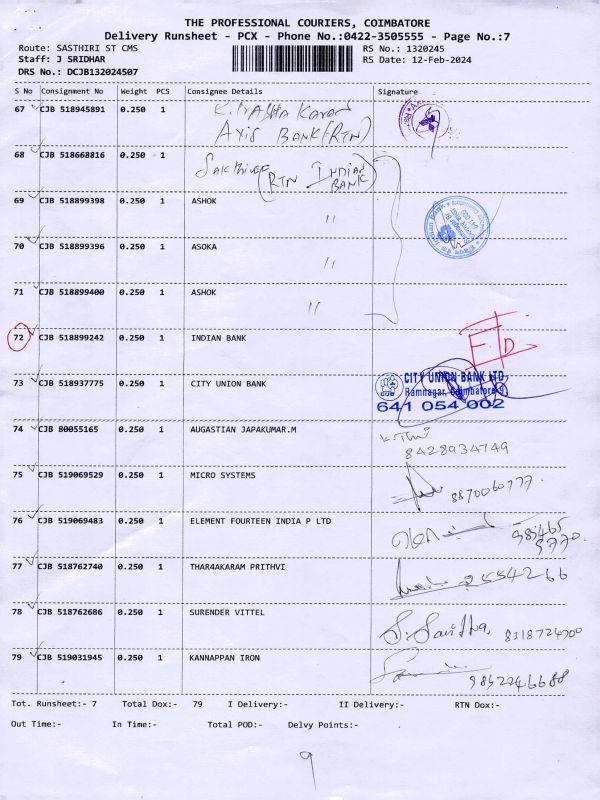 THE PROFESSIONAL COURIERS, COIMBATORE
Delivery Runsheet - PCX - Phone No.:0422-3505555 - Page No.:7
Route: SASTHIRI ST CMS RS No.: 1320245
Staff: J SRIDHAR RS Date: 12-Feb-2024
DRS No.: DCJB132024507
S No Consignment No Weight PCS Consignee Details Signature
67 CJB 518945891 0.250 1
AXIS BANK (RTN)
68 CJB 518668816 0.250 1 (RTN INDIAN BANK)
69 CJB 518899398 0.250 1 ASHOK
"
70 CJB 518899396 0.250 1 ASOKA
"
71 CJB 518899400 0.250 1 ASHOK
"
72 CJB 518899242 0.250 1 INDIAN BANK
73 CJB 518937775 0.250 1 CITY UNION BANK CITY UNION BANK LTD
Ramnagar, Coimbatore-9.
641 054 002
74 CJB 80055165 0.250 1 AUGASTIAN JAPAKUMAR.M
8428934749
75 CJB 519069529 0.250 1 MICRO SYSTEMS
8870060777
76 CJB 519069483 0.250 1 ELEMENT FOURTEEN INDIA P LTD
77 CJB 518762740 0.250 1 THAR4AKARAM PRITHVI
78 CJB 518762686 0.250 1 SURENDER VITTEL S. Savitha, 8318724700
79 CJB 519031945 0.250 1 KANNAPPAN IRON
9852246688
Tot. Runsheet:- 7 Total Dox:- 79 I Delivery:- II Delivery:- RTN Dox:-
Out Time:- In Time:- Total POD:- Delvy Points:-
9